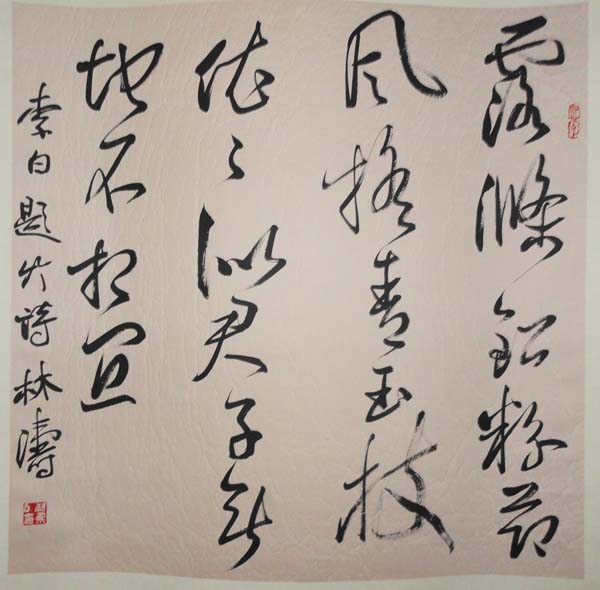 露滌鉛粉節
風搖青玉枝
依々似君子無
地不相宜
李白題竹詩林濤